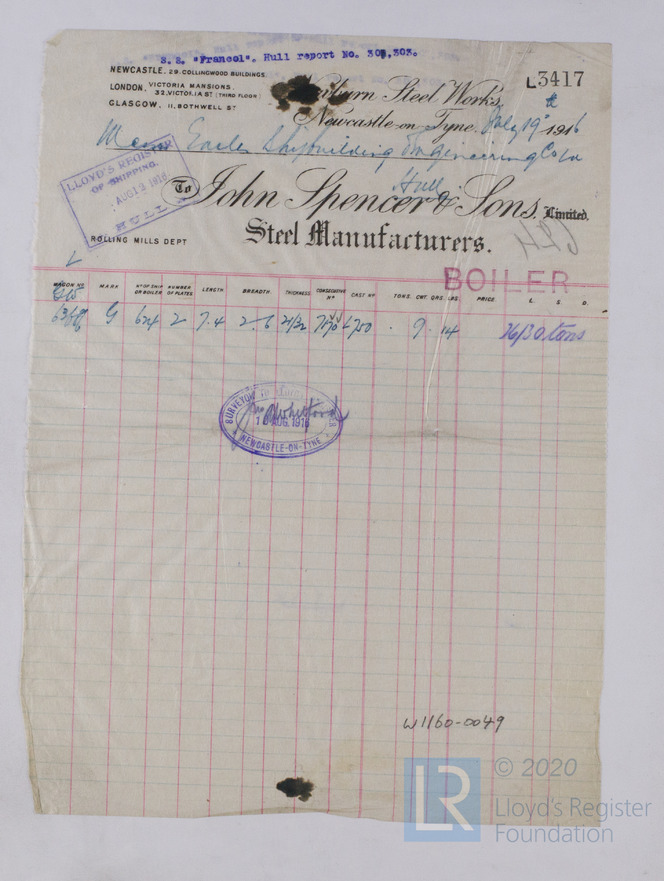 S. S. "Francol". Hull report No. 303,303.
NEWCASTLE, 29. COLLINGWOOD BUILDINGS.
LONDON, VICTORIA MANSIONS.
32, VICTORIA ST (THIRD FLOOR)
GLASGOW, 11, BOTHWELL ST
L3417
Steel Works,
Newcastle-on-Tyne, July 19 1916
Earle's Shipbuilding & Engineering Co Ld
Hull
LLOYD'S REGISTER
OF SHIPPING.
AUG 12 1916
HULL
To John Spencer & Sons, Limited.
Steel Manufacturers.
ROLLING MILLS DEPT
BOILER
WAGON No MARK No OF SHIP OR BOILER NUMBER OF PLATES LENGTH BREADTH THICKNESS CONSECUTIVE No CAST No TONS. CWT. QRS. LBS. PRICE L. S. D.
G 624 2 7.4 2.6 21/32 9 . 14 26/30 tons
SURVEYOR TO LLOYD'S REGISTER
10 AUG. 1916
NEWCASTLE-ON-TYNE
W1160-0049
LR © 2020
Lloyd's Register
Foundation